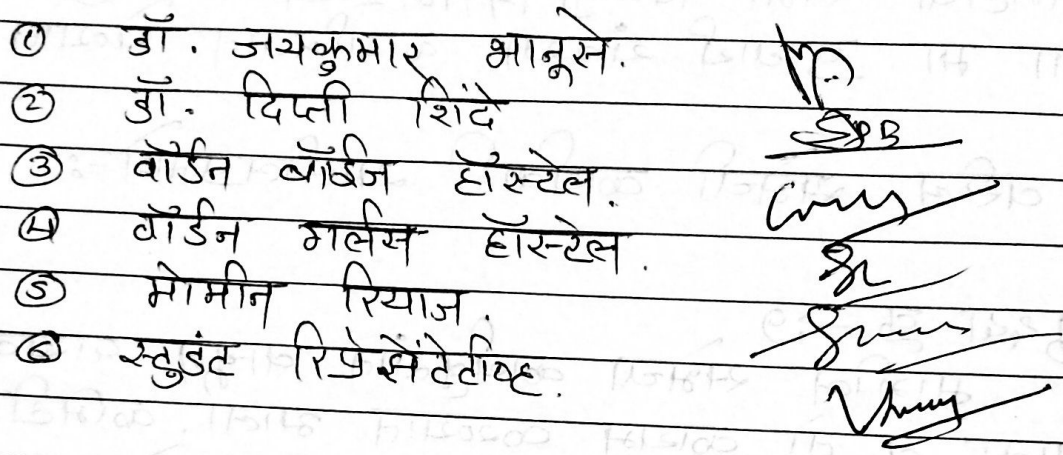 ① डॉ. जयकुमार भानूसे.
② डॉ. दिप्ती शिंदे
③ वॉर्डन बॉईज हॉस्टेल.
④ वॉर्डन गर्लस हॉस्टेल.
⑤ मोमीन रियाज.
⑥ स्टुडंट रिप्रेसेंटेटीव्ह.